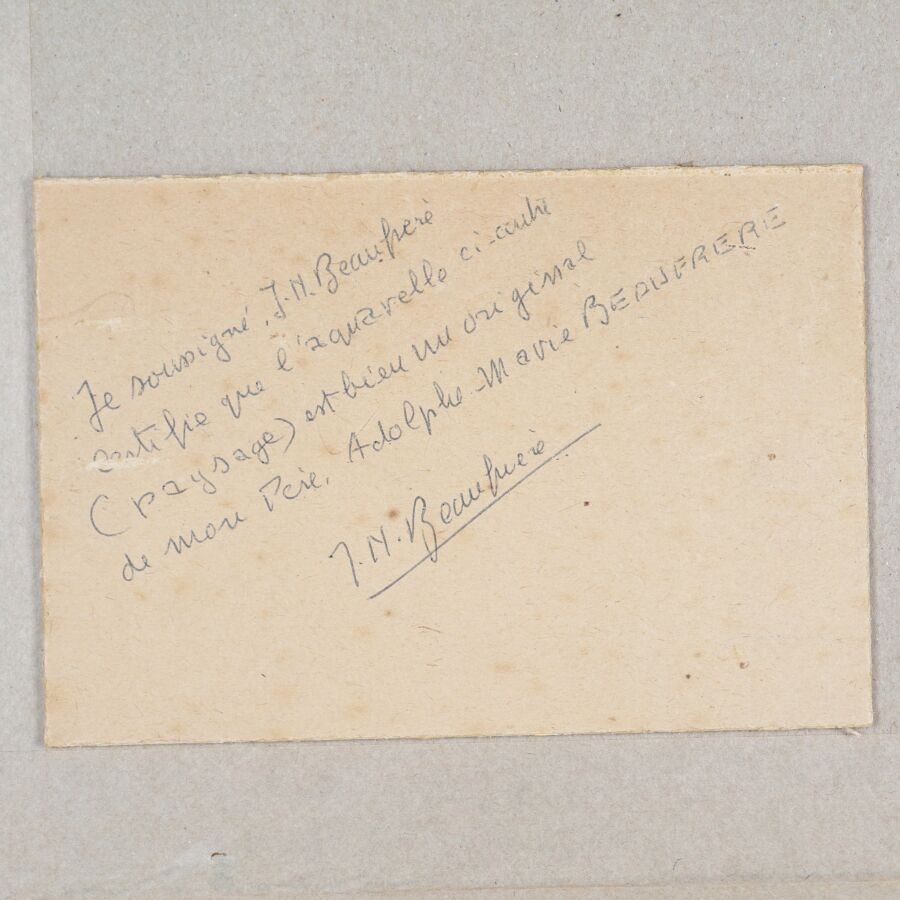 Je soussigné, J.M. Beaufrère
certifie que l'aquarelle ci-contre
(paysage) est bien un original
de mon Père, Adolphe-Marie BEAUFRERE
J.M. Beaufrère